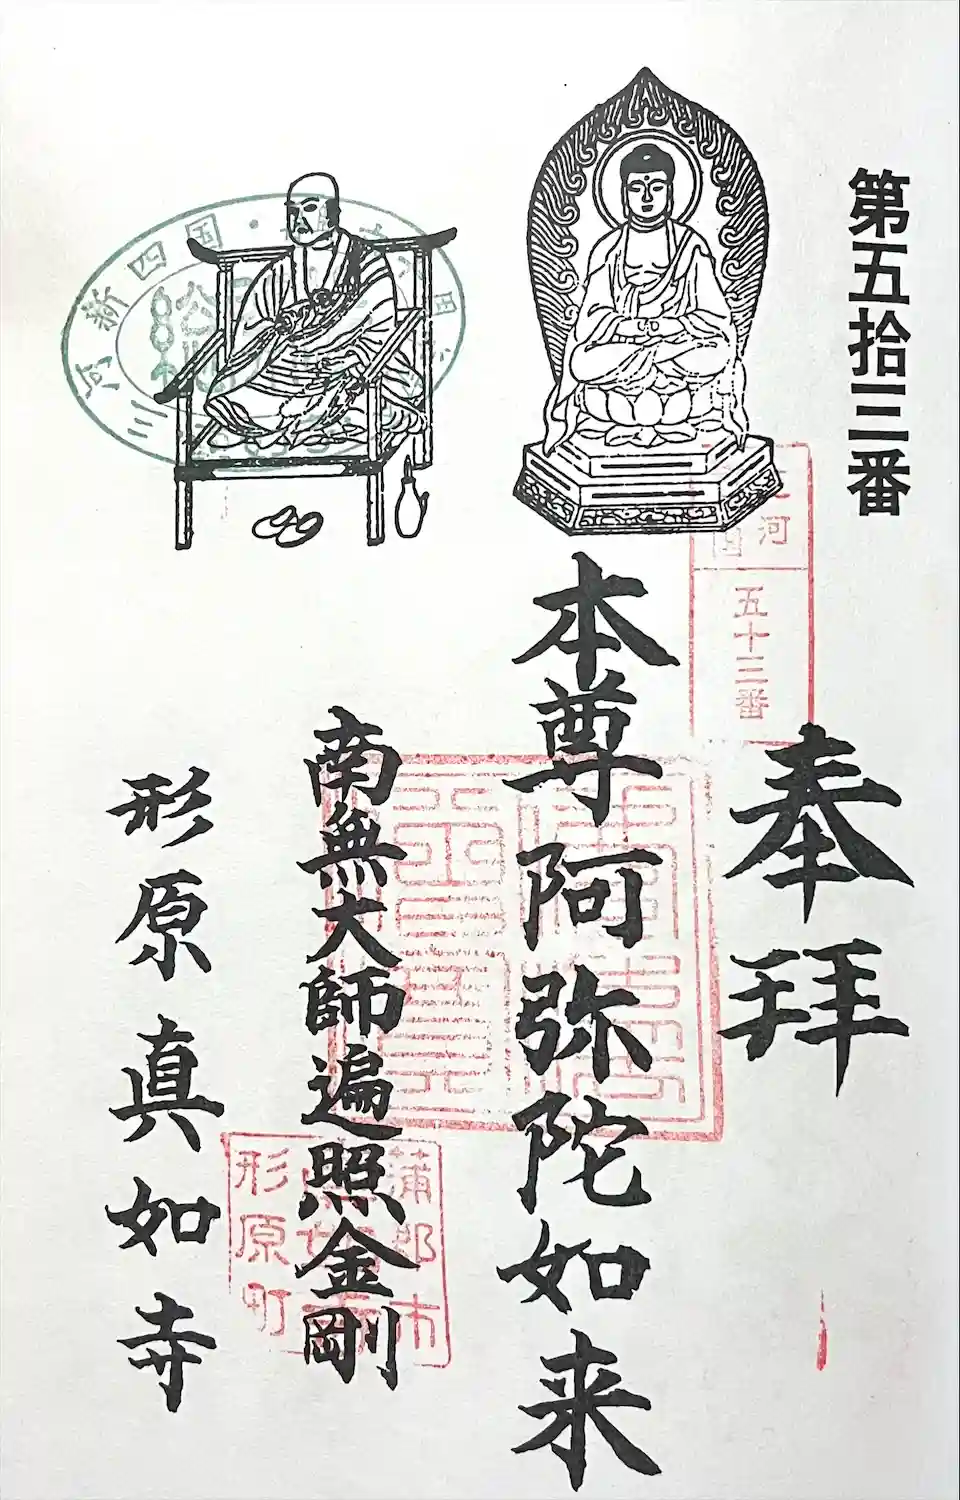 第五拾三番
奉拝
本尊阿弥陀如来
南無大師遍照金剛
形原真如寺
三河新四国
河
五十三番
蒲郡市
形原町